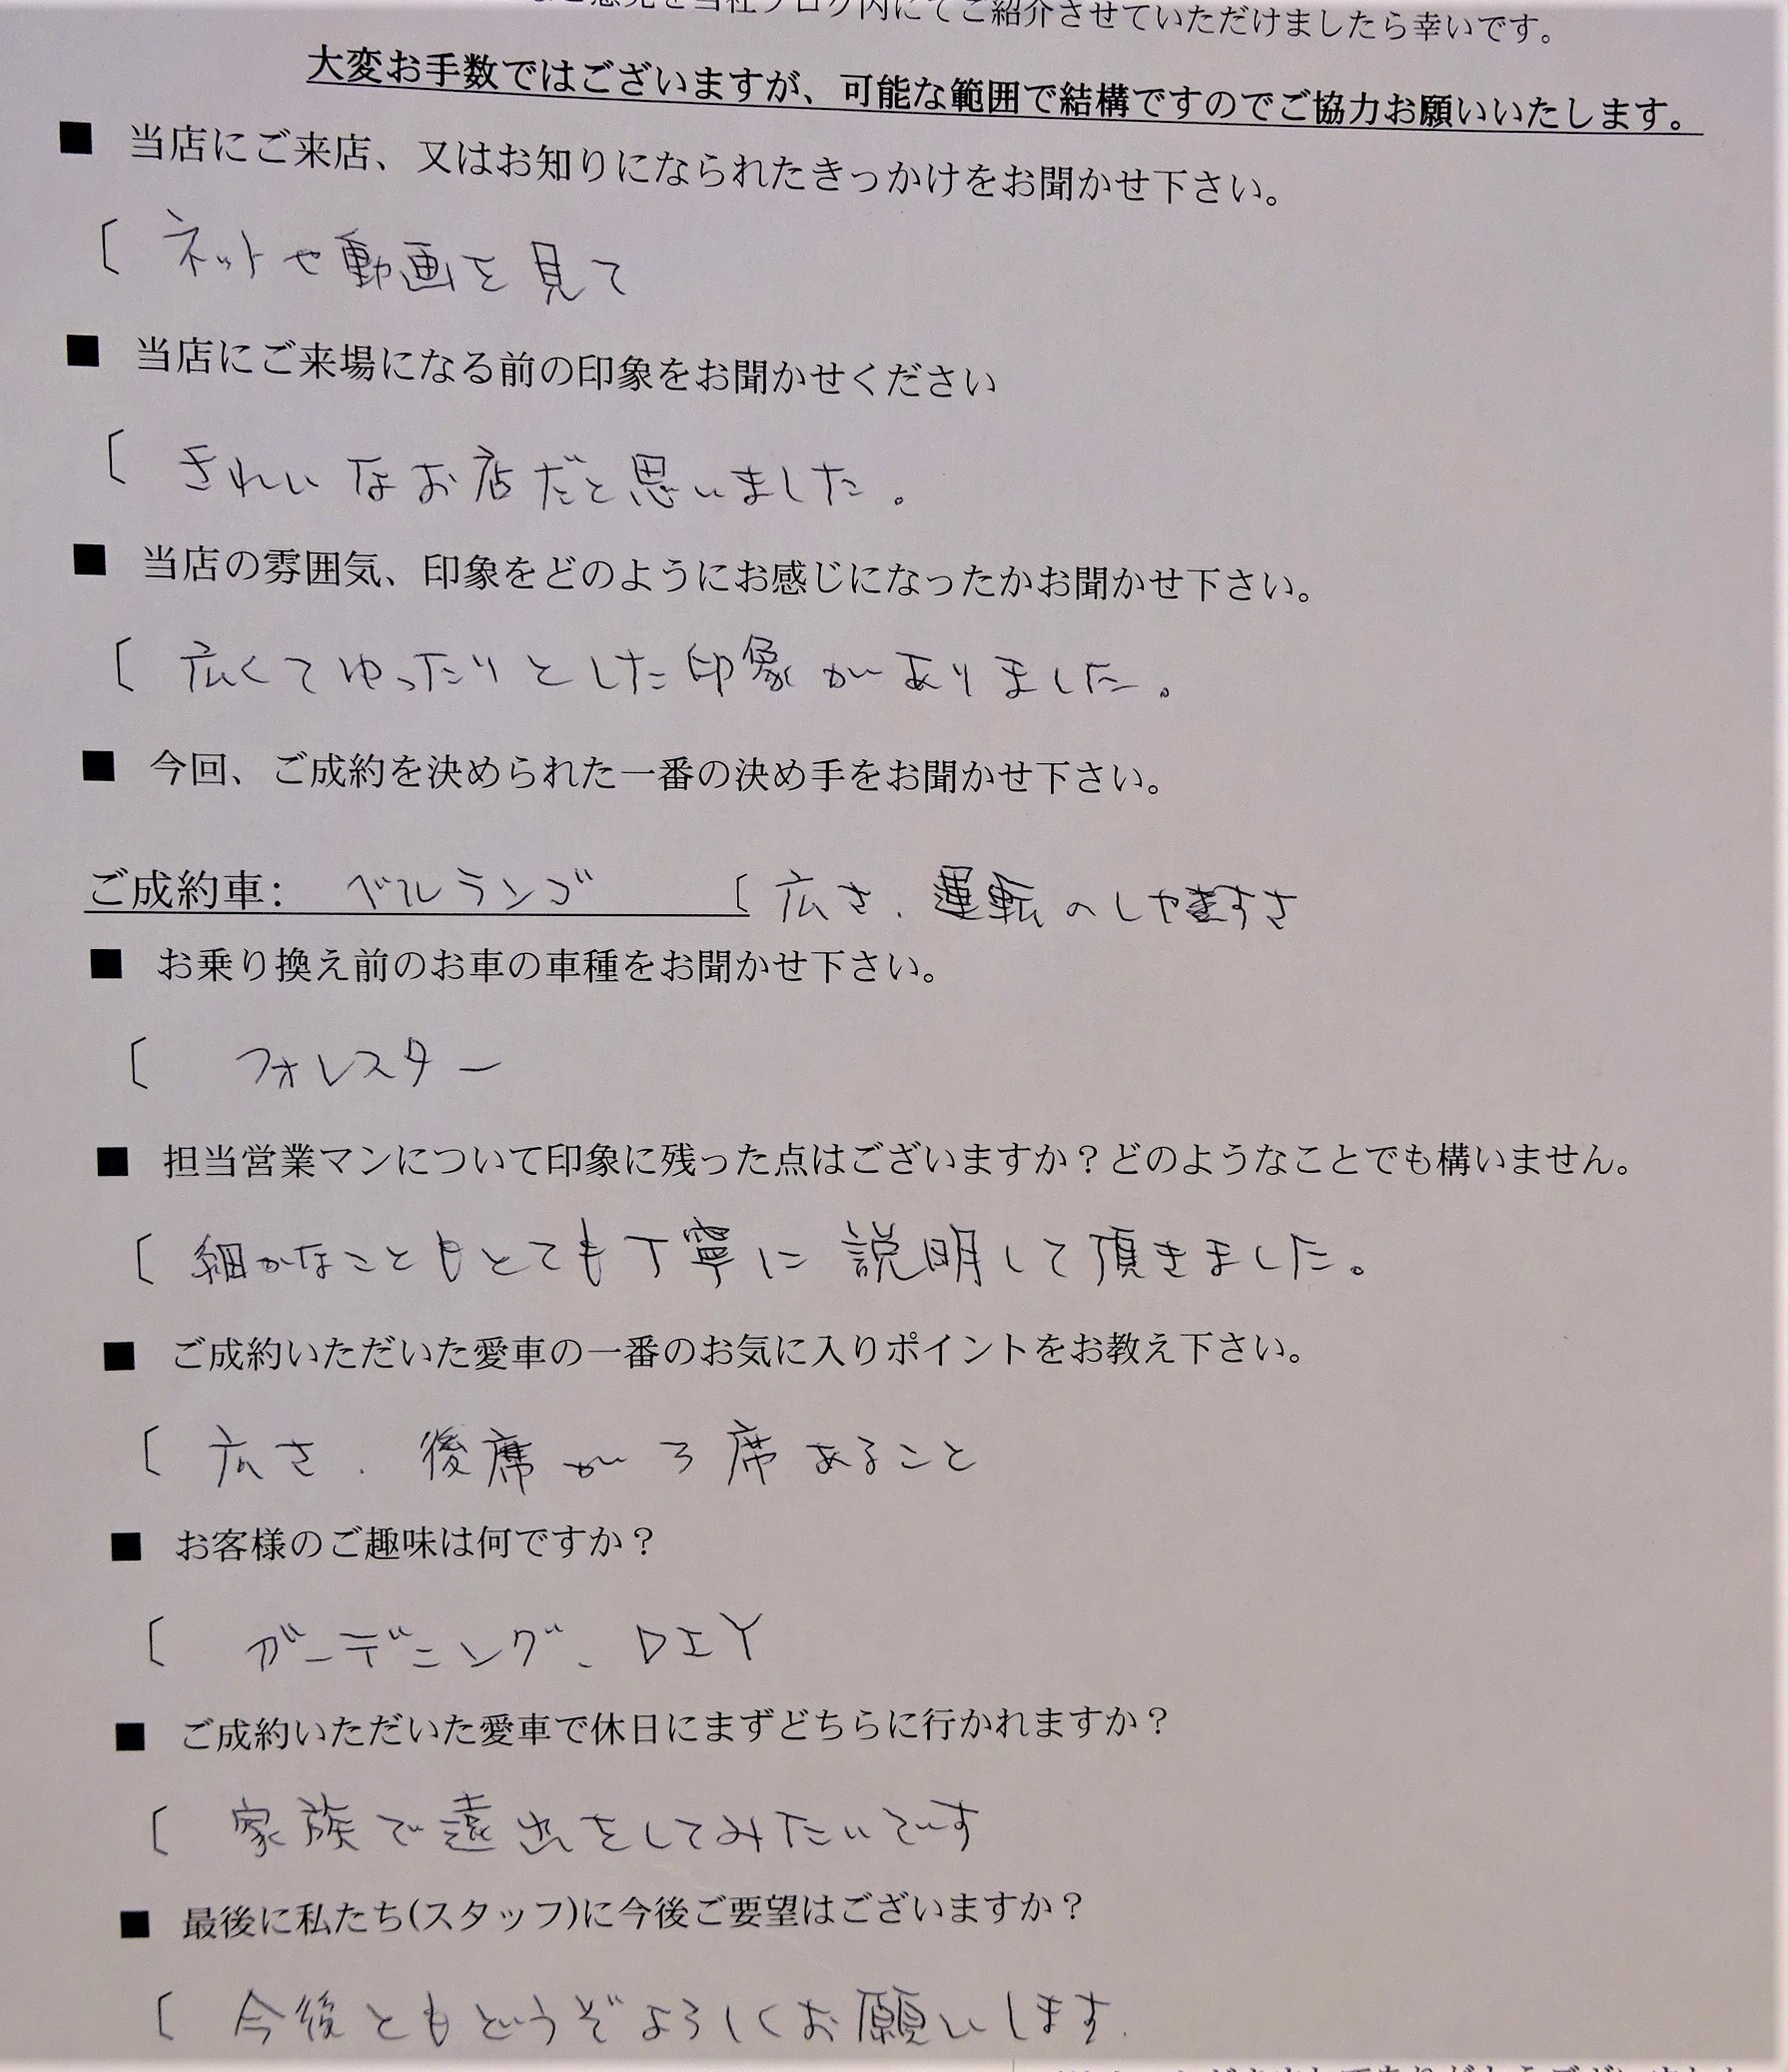 ご意見を当社ブログ内にてご紹介させていただけましたら幸いです。
大変お手数ではございますが、可能な範囲で結構ですのでご協力お願いいたします。
■ 当店にご来店、又はお知りになられたきっかけをお聞かせ下さい。
[ ネットや動画を見て
■ 当店にご来場になる前の印象をお聞かせください
[ きれいなお店だと思いました。
■ 当店の雰囲気、印象をどのようにお感じになったかお聞かせ下さい。
[ 広くてゆったりとした印象がありました。
■ 今回、ご成約を決められた一番の決め手をお聞かせ下さい。
ご成約車: ベルランゴ [ 広さ、運転のしやすさ
■ お乗り換え前のお車の車種をお聞かせ下さい。
[ フォレスター
■ 担当営業マンについて印象に残った点はございますか？どのようなことでも構いません。
[ 細かなこともとても丁寧に説明して頂きました。
■ ご成約いただいた愛車の一番のお気に入りポイントをお教え下さい。
[ 広さ、後席が3席あること
■ お客様のご趣味は何ですか？
[ ガーデニング、DIY
■ ご成約いただいた愛車で休日にまずどちらに行かれますか？
[ 家族で遠出をしてみたいです
■ 最後に私たち(スタッフ)に今後ご要望はございますか？
[ 今後ともどうぞよろしくお願いします.